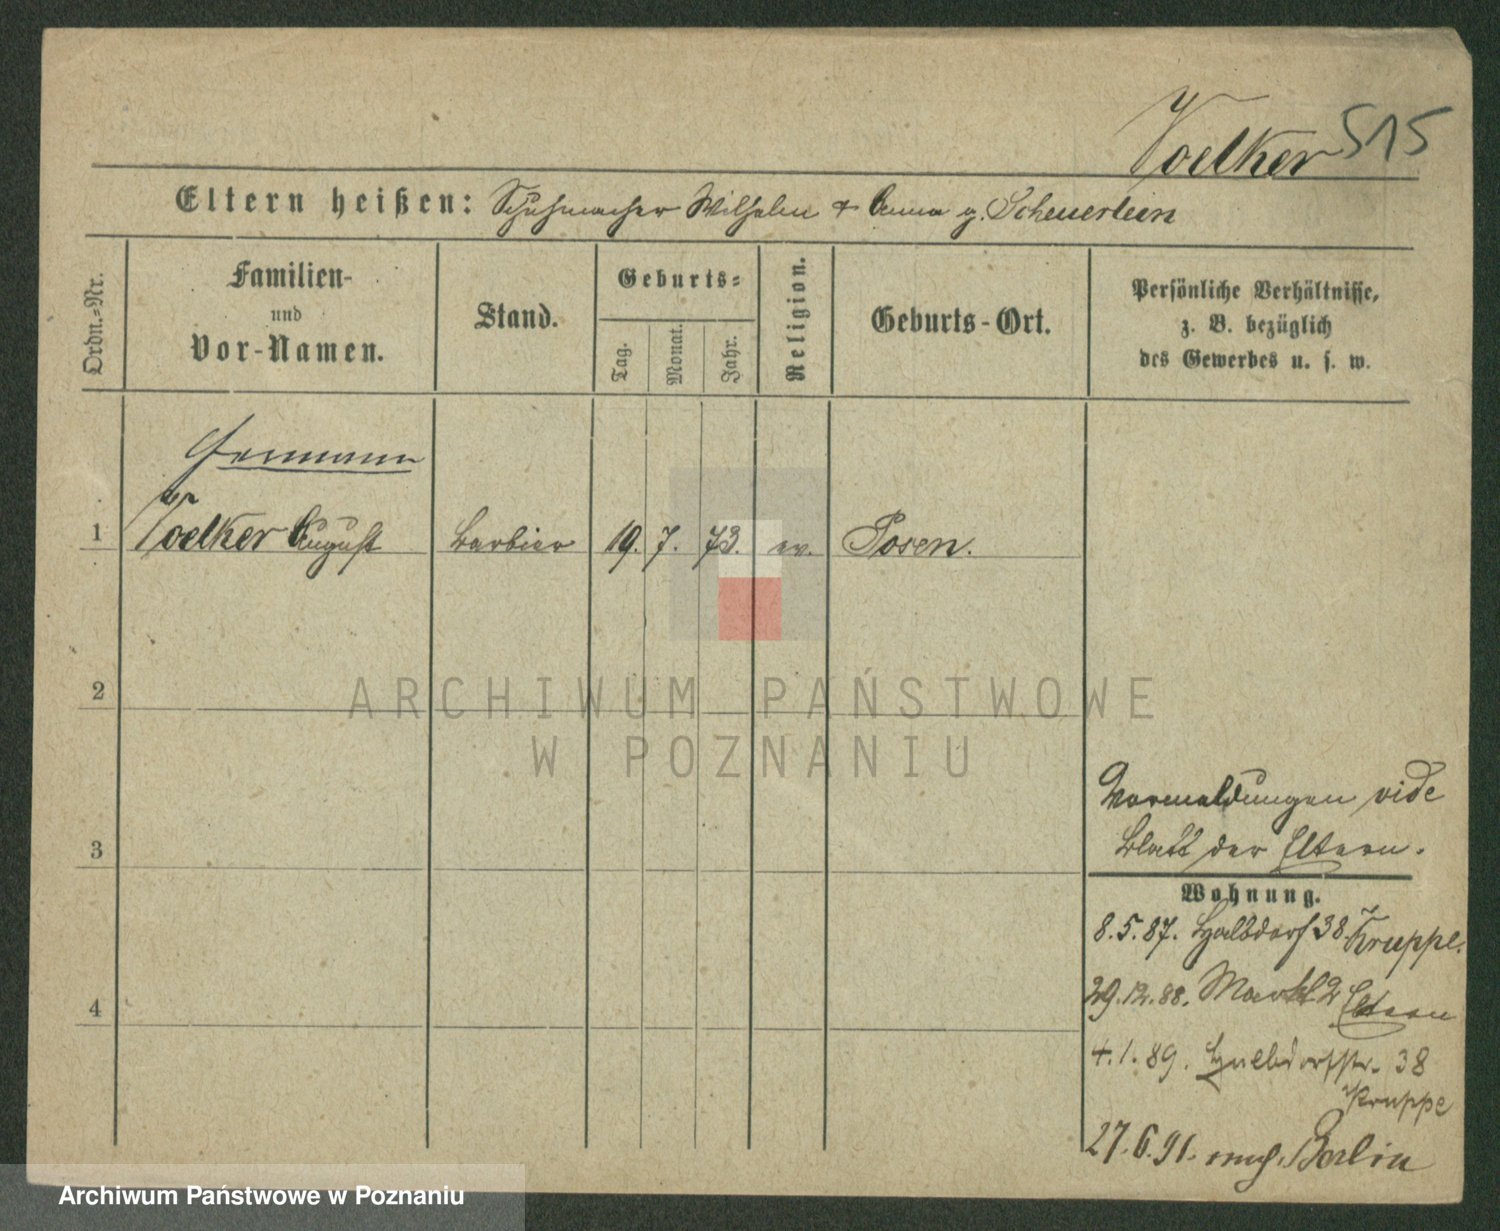 Voelker 515
Eltern heißen: Schuhmacher Wilhelm + Anna g. Scheuerlein
Ordn.=Nr.
Familien-
und
Vor-Namen.
Stand.
Geburts=
Tag.
Monat.
Jahr.
Religion.
Geburts-Ort.
Persönliche Verhältnisse,
z. B. bezüglich
des Gewerbes u. s. w.
Hermann
1 Voelker August Barbier 19. 7. 73. ev. Posen.
2
3
4
Vormeldungen vide
Blatt der Eltern.
Wohnung.
8.5.87. Halbdorf 38. Kruppe.
29.12.88. Markt 2 Eltern
4.1.89. Halbdorfstr. 38
Kruppe
27.6.91. nach Berlin
ARCHIWUM PAŃSTWOWE
W POZNANIU
Archiwum Państwowe w Poznaniu